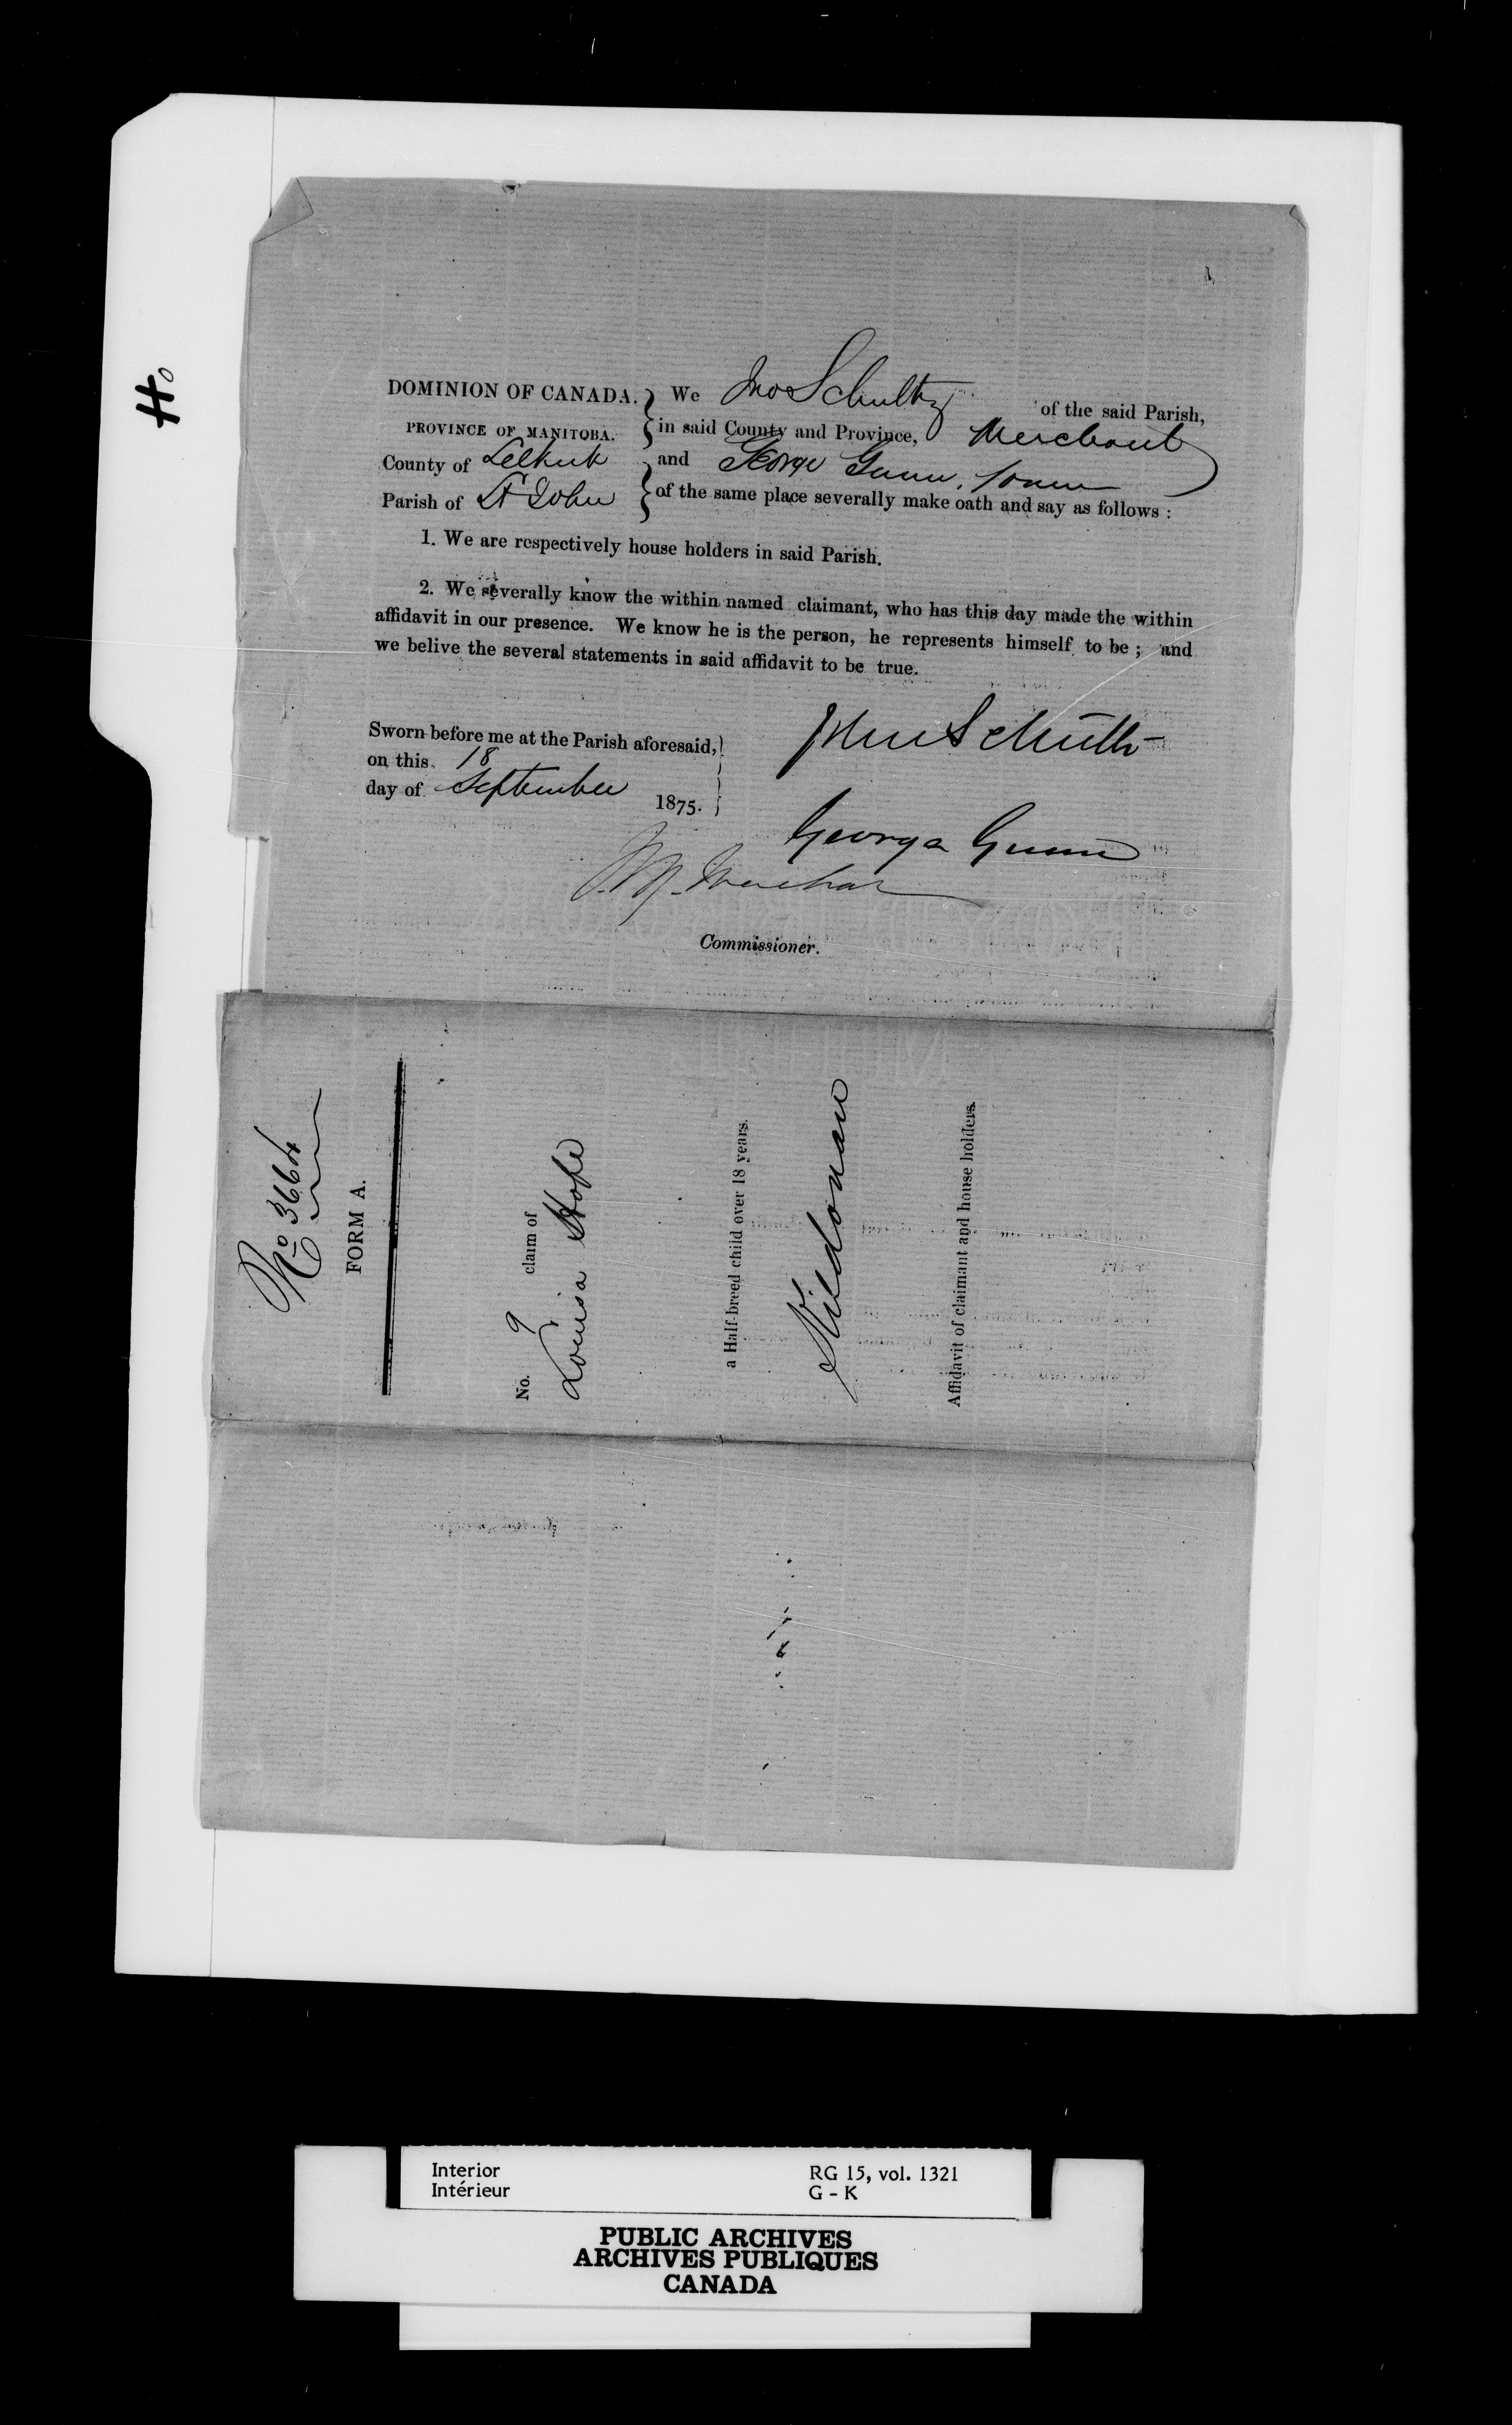 Ho
DOMINION OF CANADA.
PROVINCE OF MANITOBA.
County of Selkirk
Parish of St John
We Jno Schultz of the said Parish,
in said County and Province, Merchant
and George Gunn,
of the same place severally make oath and say as follows :
1. We are respectively house holders in said Parish.
2. We severally know the within named claimant, who has this day made the within
affidavit in our presence. We know he is the person, he represents himself to be ; and
we belive the several statements in said affidavit to be true.
Sworn before me at the Parish aforesaid,
on this 18
day of September 1875.
John Schultz
George Gunn
Commissioner.
No 3664
FORM A.
No. 9 claim of
Louisa Hope
a Half-breed child over 18 years.
Kildonan
Affidavit of claimant and house holders.
Interior
Intérieur
RG 15, vol. 1321
G - K
PUBLIC ARCHIVES
ARCHIVES PUBLIQUES
CANADA